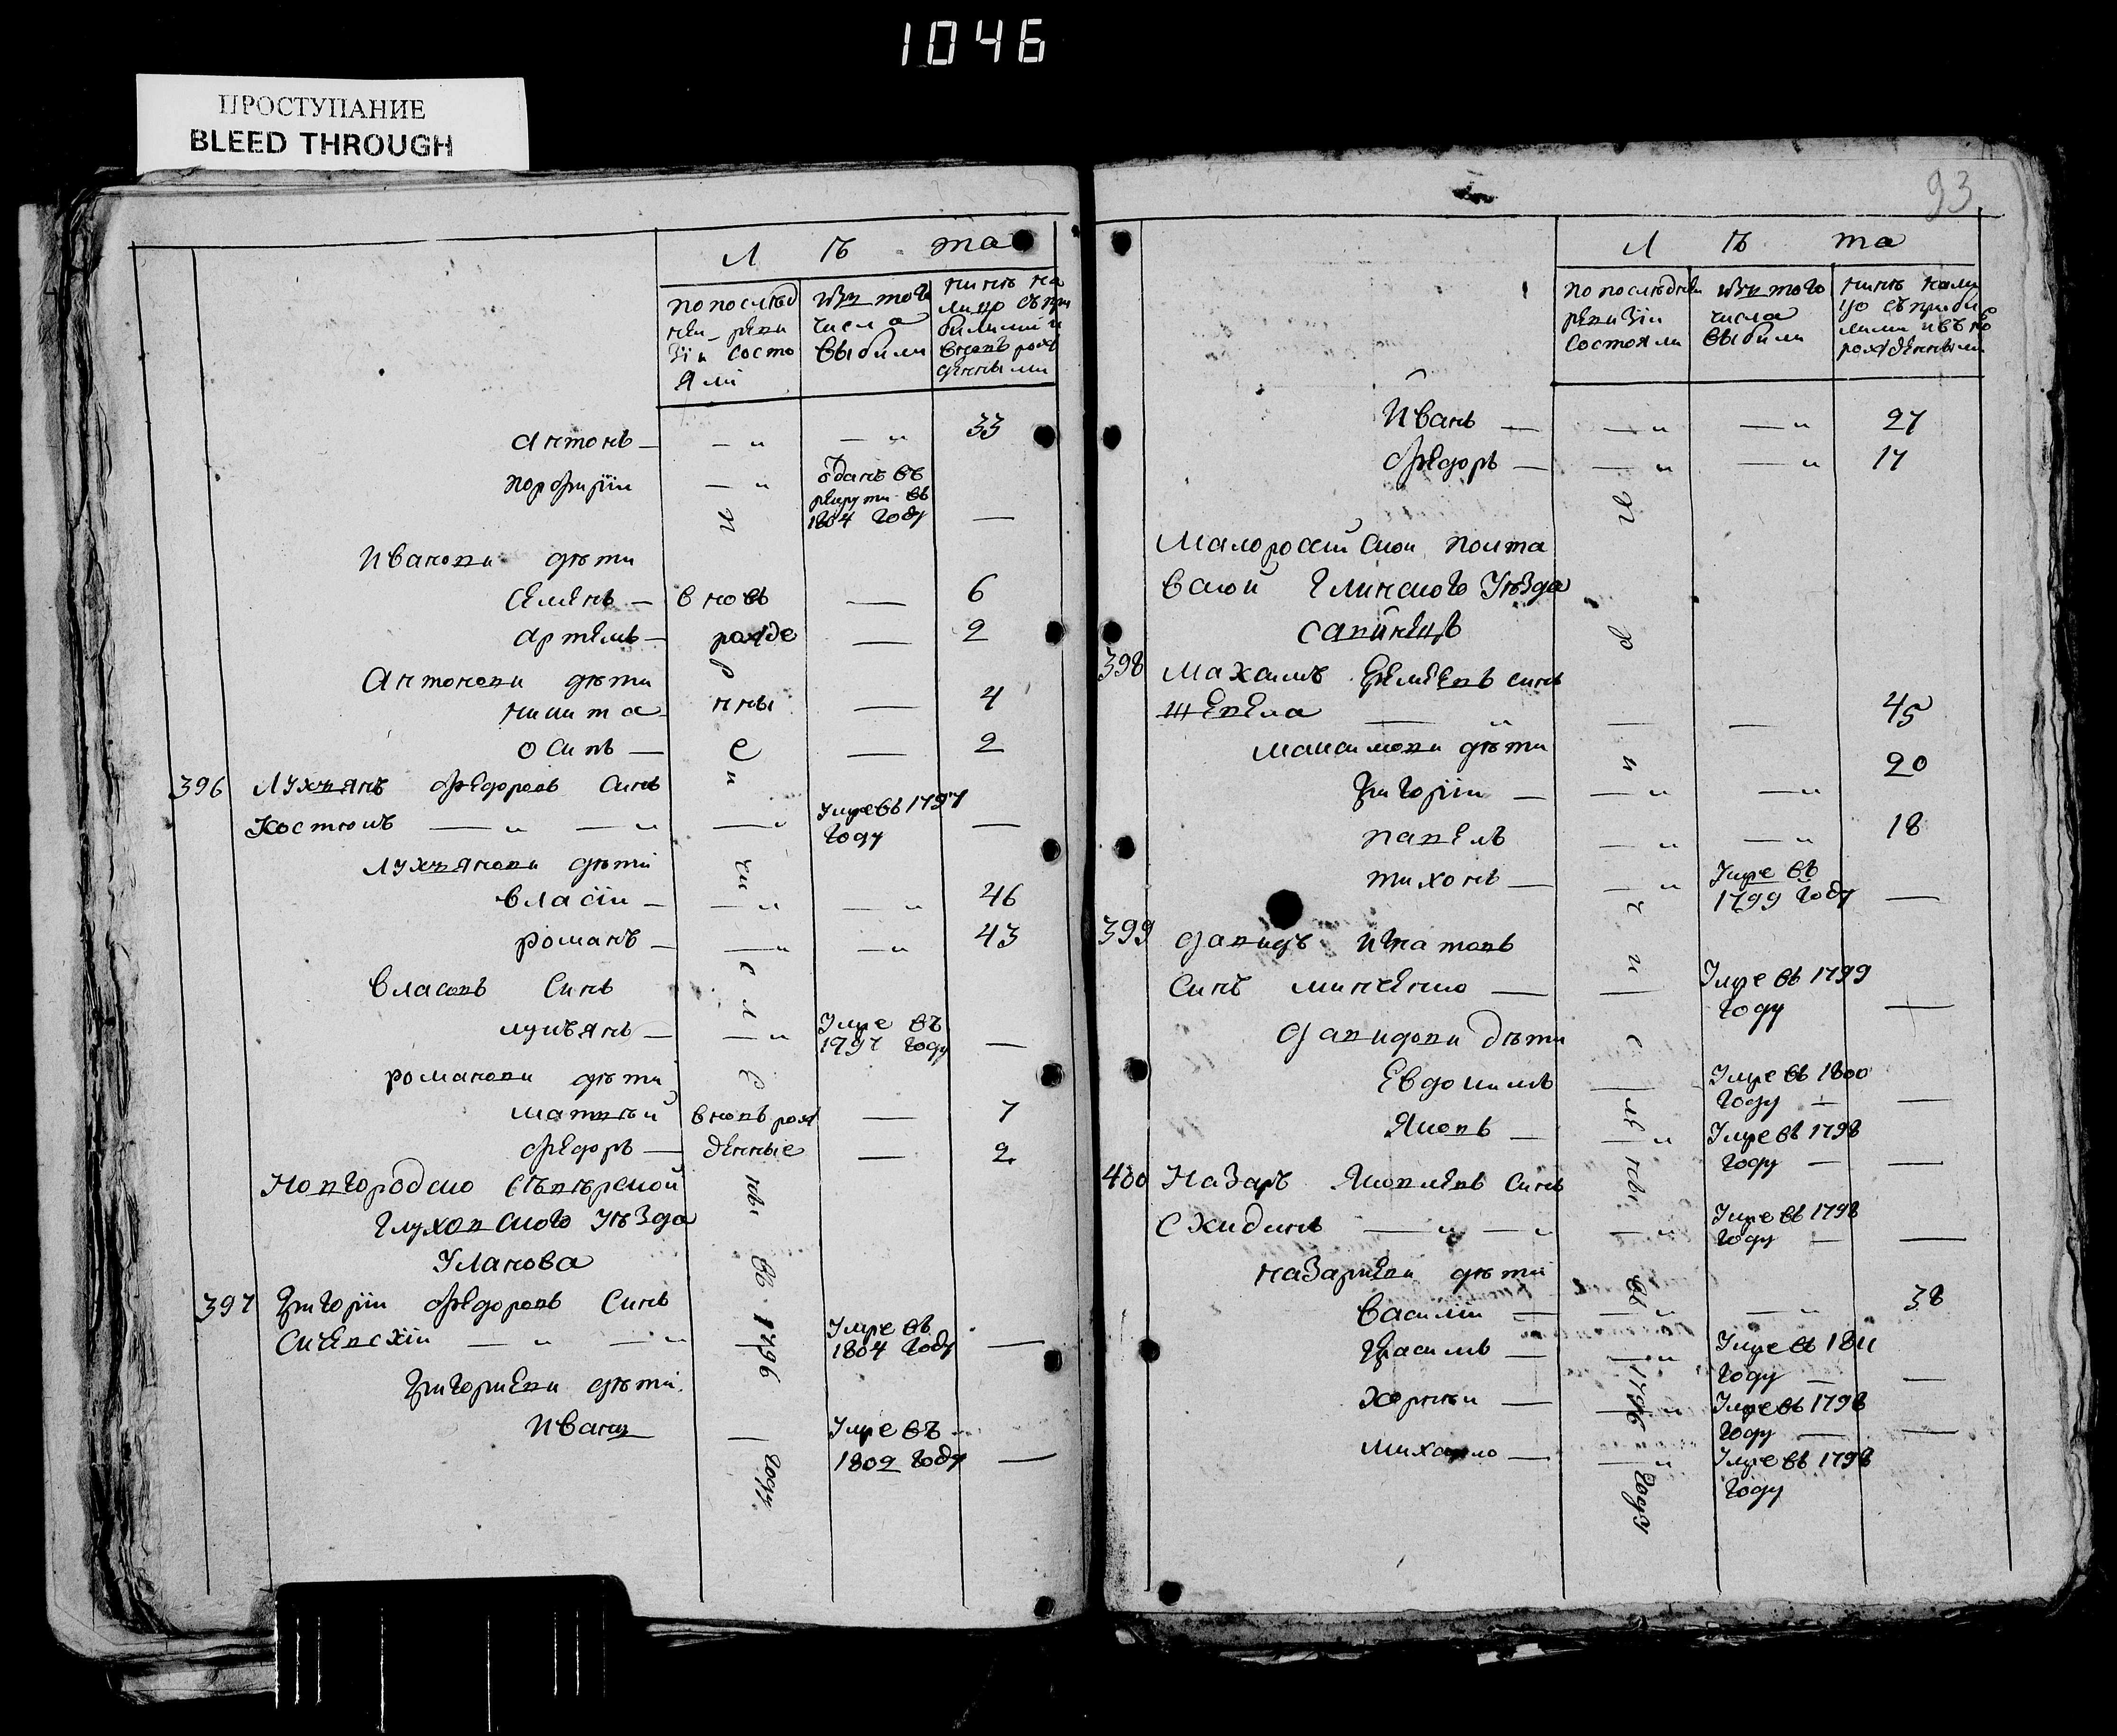 1046
ПРОСТУПАНИЕ
BLEED THROUGH
Л ѣ та
по послѣд
ней реви
зіи состо
яли
изъ того
числа
выбыли
нынѣ на
лицо съ при
былыми и
вновь рож
денными
Антонъ — — " — " 33
Порфирій — " отданъ въ
рекруты въ
1804 году —
Ивановы дѣти
Семенъ — вновь — 6
Артемъ — рожде — 2
Антоновы дѣти
Никита нны — 4
Осипъ — е — 2
396 Лукьянъ Федоровъ сынъ
Костюкъ — " — " — " умре въ 1797
году —
Лукьяновы дѣти
Власій — — " — " 46
Романъ — — " — " 43
Власовъ сынъ
Лукьянъ — — " умре въ
1797 году —
Романовы дѣти
Матвѣй вновь рож — 7
Федоръ — денные — 2
Новгородско Сѣверской
Глуховского уѣзда
Уланова
397 Григорій Федоровъ сынъ
Сичевскій — " — " умре въ
1804 году —
Григорьевы дѣти
Иванъ умре въ
1802 году —
переичислены въ 1796 году
93
Л ѣ та
по послѣдней
ревизіи
состояли
изъ того
числа
выбыли
нынѣ нали
цо съ прибы
лыми и въно
рожденными
Иванъ — — " — " 27
Федоръ — — " — " 17
Малоросійской Полта
вской Глинского уѣзда
398 Максимъ Еремѣевъ сынъ
Шепела — " — — 45
Максимовы дѣти
Григорій — — " — " 20
Павелъ — " — " 18
Тихонъ — — " умре въ
1799 году —
399 Давидъ Игнатовъ
сынъ Минченко — — умре въ 1799
году —
Давидовы дѣти
Евдокимъ — умре въ 1800
году — —
Яковъ — — " умре въ 1798
году — —
400 Назаръ Яковлевъ сынъ
Схидинъ — " — " — " умре въ 1798
году — —
Назарьевы дѣти
Василій — — " — " 38
Герасимъ — — " умре въ 1811
году — —
Корнѣй — — " умре въ 1798
году — —
Михайло — — " умре въ 1798
году
перичисленны въ 1796 году